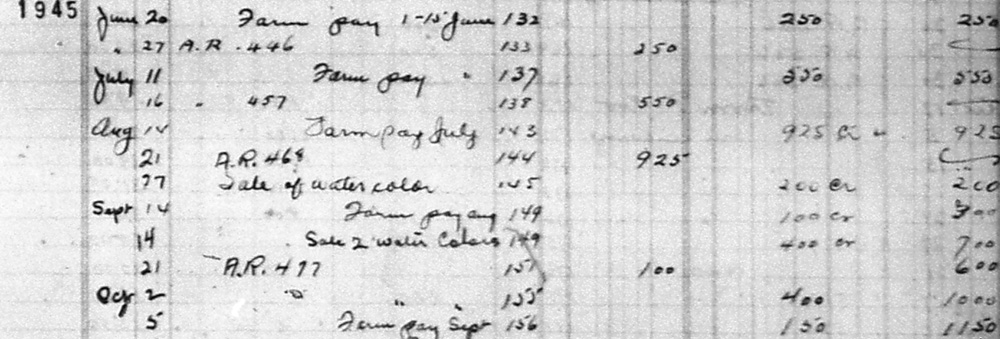 1945 June 20 Farm pay 1-15 June 132 250 250
" 27 A.R. 446 133 250
July 11 Farm pay " 137 550 550
16 " 457 138 550
Aug 14 Farm pay July 143 925 Cr 925
21 A.R. 468 144 925
27 Sale of water color 145 200 Cr 200
Sept 14 Farm pay aug 149 100 cr 300
14 Sale 2 water Colors 149 400 cr 700
21 A.R. 477 151 100 600
Oct 2 " " " 155 400 1000
5 Farm pay Sept 156 150 1150